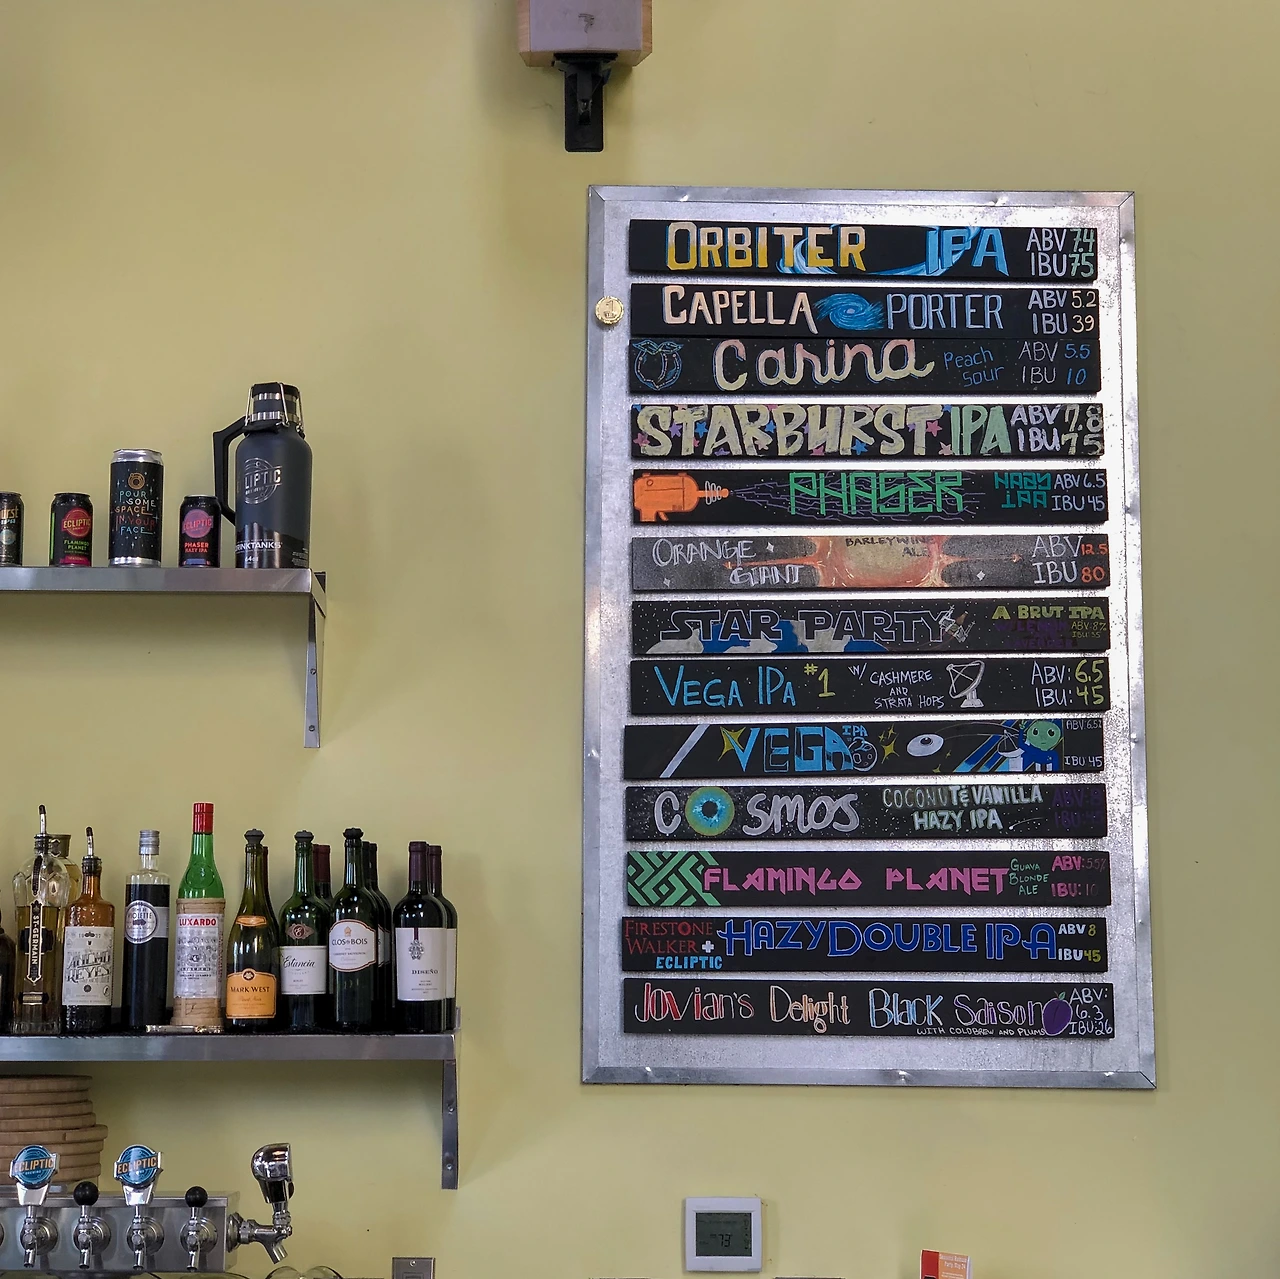 ORBITER IPA ABV 7.4
IBU 75
CAPELLA PORTER ABV 5.2
IBU 39
Carina Peach Sour ABV 5.5
IBU 10
STARBURST IPA ABV 7.8
IBU 75
PHASER HAZY IPA ABV 6.5
IBU 45
ORANGE GIANT BARLEYWINE ALE ABV 12.5
IBU 80
STAR PARTY A BRUT IPA
ABV: 8%
IBU: 35
VEGA IPA #1 W/ CASHMERE AND STRATA HOPS ABV: 6.5
IBU: 45
VEGA IPA
IBU 45
COSMOS COCONUT & VANILLA
HAZY IPA
FLAMINGO PLANET GUAVA BLONDE ALE ABV: 5.5%
IBU: 10
FIRESTONE WALKER + ECLIPTIC HAZY DOUBLE IPA ABV 8
IBU 45
Jovian's Delight Black Saison ABV: 6.3
WITH COLDBREW AND PLUMS IBU: 26
ECLIPTIC
FLAMINGO
PLANET
POUR
SOME
SPACE
IN YOUR
FACE
ECLIPTIC
PHASER
HAZY IPA
LIPTIC
DRINKTANKS
ST-GERMAIN
LUXARDO
MARK WEST
Estancia
CLOS du BOIS
DISEÑO
ECLIPTIC
ECLIPTIC
73